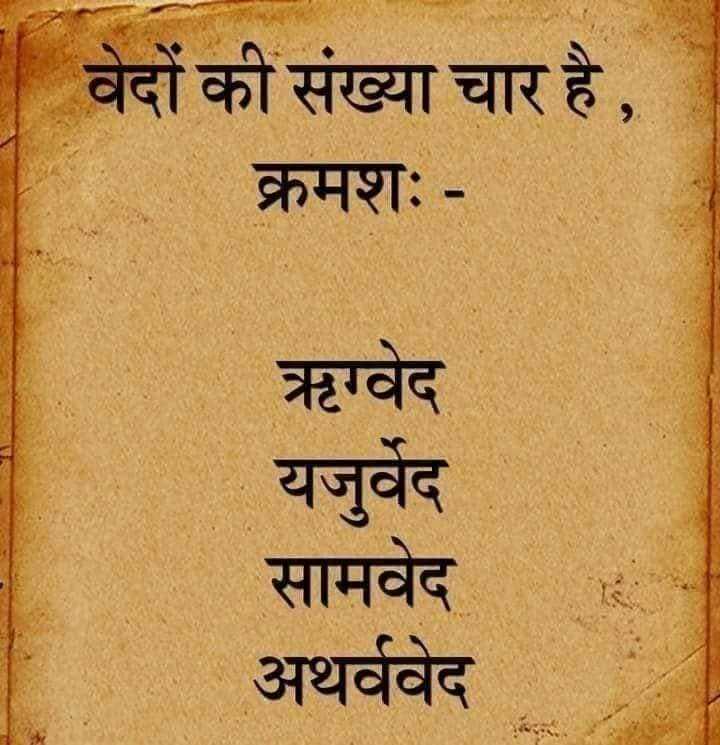 वेदों की संख्या चार है ,
क्रमशः -
ऋग्वेद
यजुर्वेद
सामवेद
अथर्ववेद